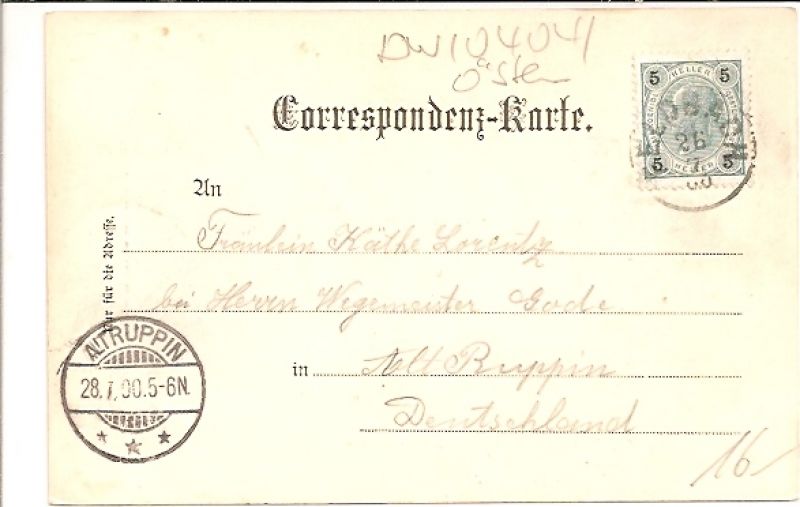 DW104041
Öster
Correspondenz-Karte.
5 HELLER 5
5 HELLER 5
26
7
An
Fräulein Käthe Lorentz
bei Herrn Wegemeister Gode
in Alt Ruppin
Deutschland
Nur für die Adresse.
ALTRUPPIN
28.7.00.5-6N.
16